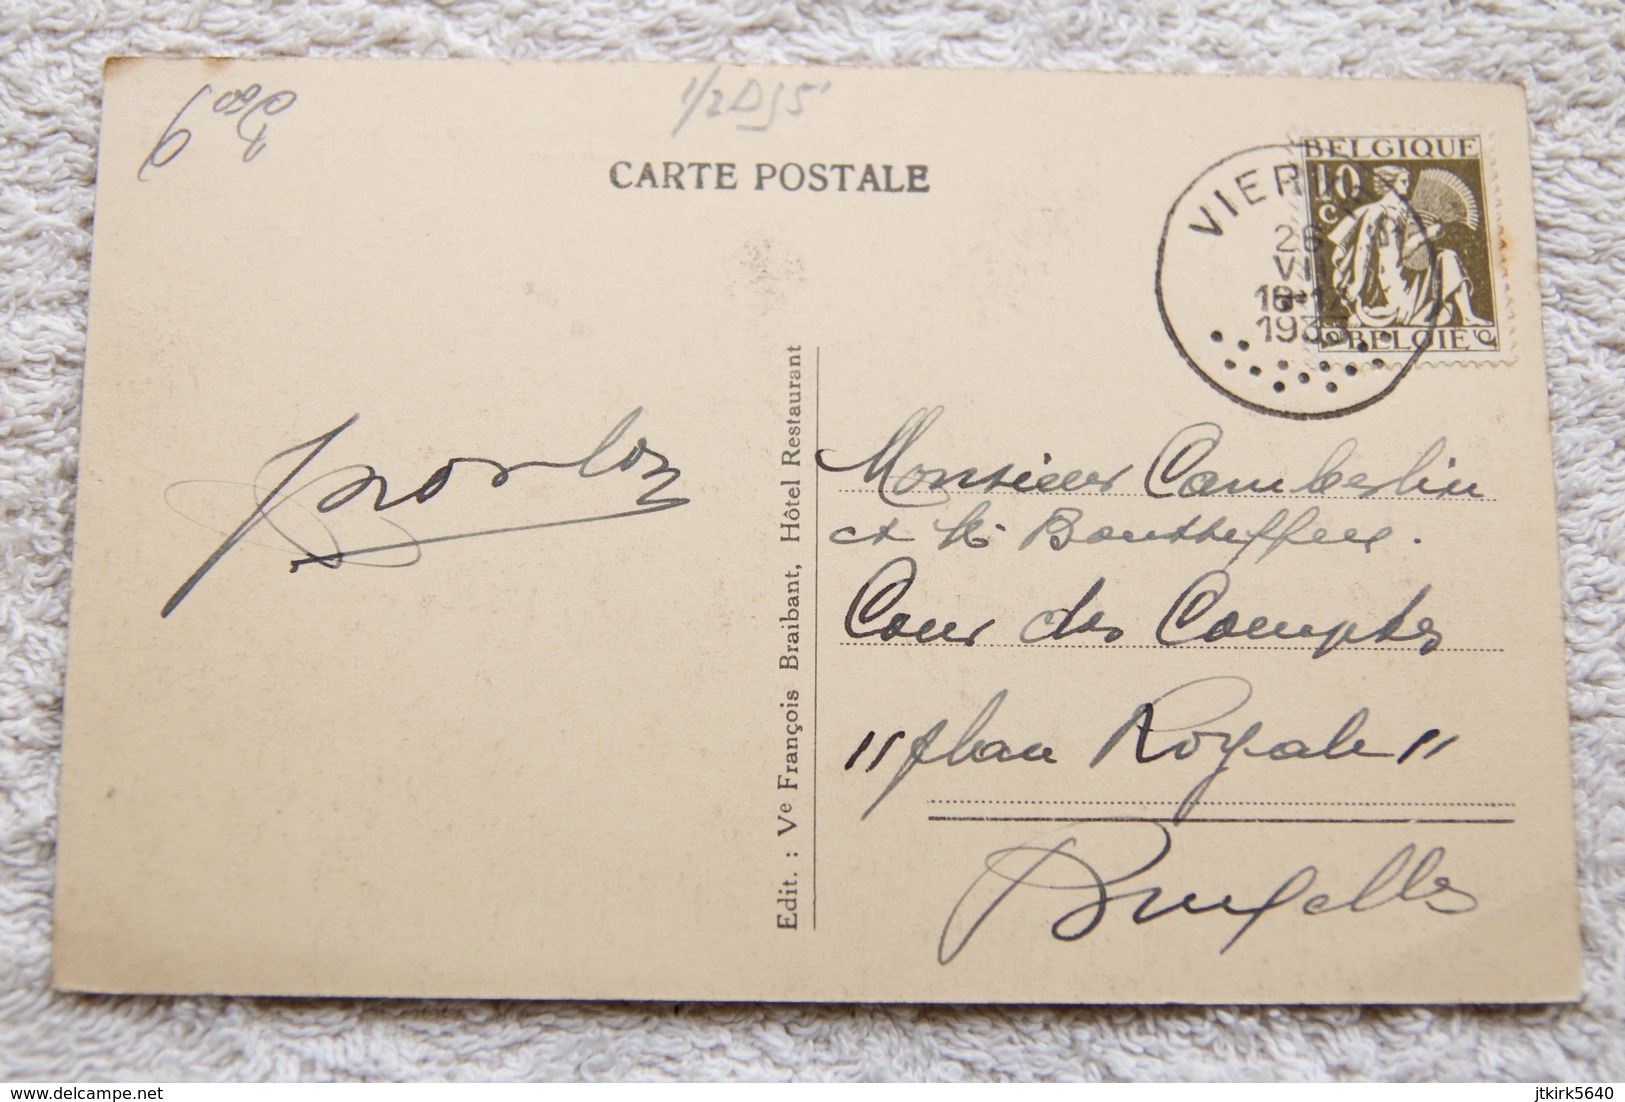 1/2 D 35'
CARTE POSTALE
BELGIQUE
10
c
BELGIE
VIER
26
VII
1933
Edit. : Ve François Braibant, Hôtel Restaurant
Monsieur Camberlin
et
Cour des Comptes
"place Royale"
Bruxelles
delcampe.net
jtkirk5640